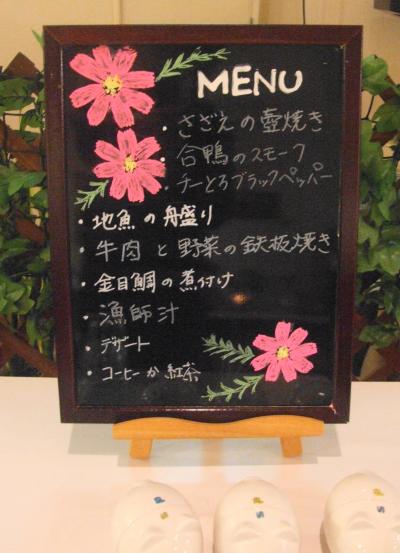 MENU
・さざえの壺焼き
・合鴨のスモーク
・チーとろブラックペッパー
・地魚の舟盛り
・牛肉と野菜の鉄板焼き
・金目鯛の煮付け
・漁師汁
・デザート
・コーヒーか紅茶